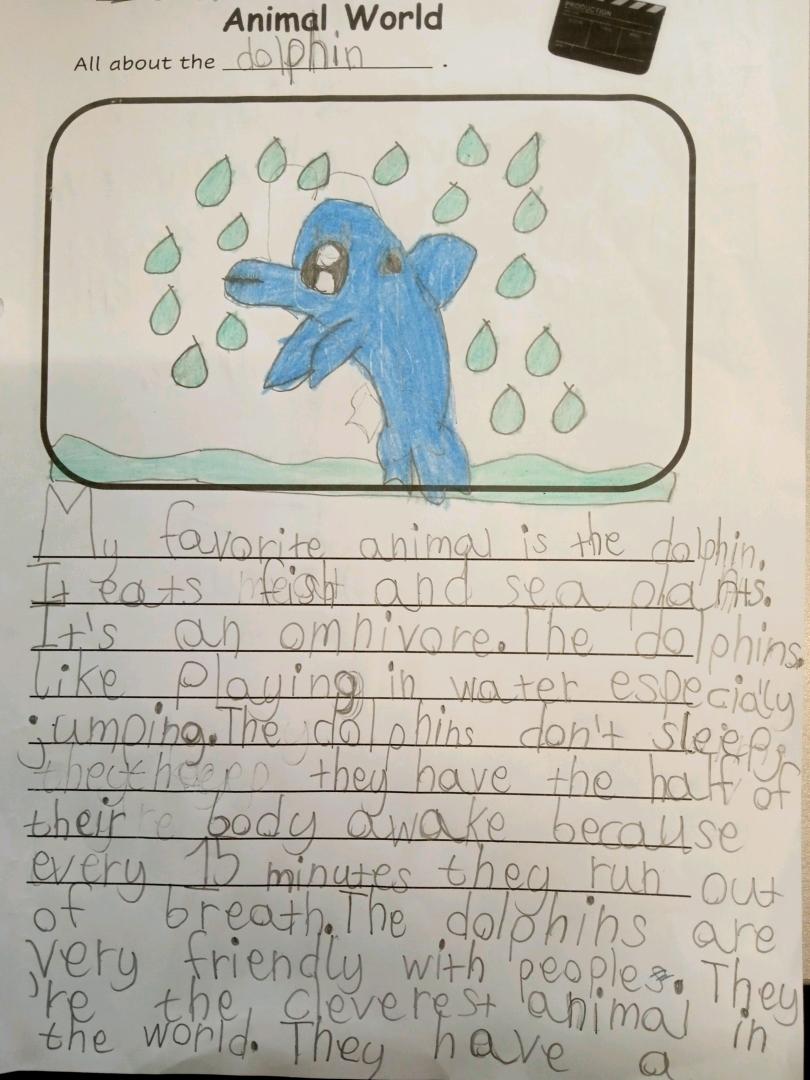 Animal World
PRODUCTION
All about the dolphin .
My favorite animal is the dolphin.
It eats fish and sea plants.
It's an omnivore. The dolphins
like playing in water especially
jumping. The dolphins don't sleep,
they have the half of
their body awake because
every 15 minutes they run out
of breath. The dolphins are
very friendly with people. They
're the cleverest animal in
the world. They have a